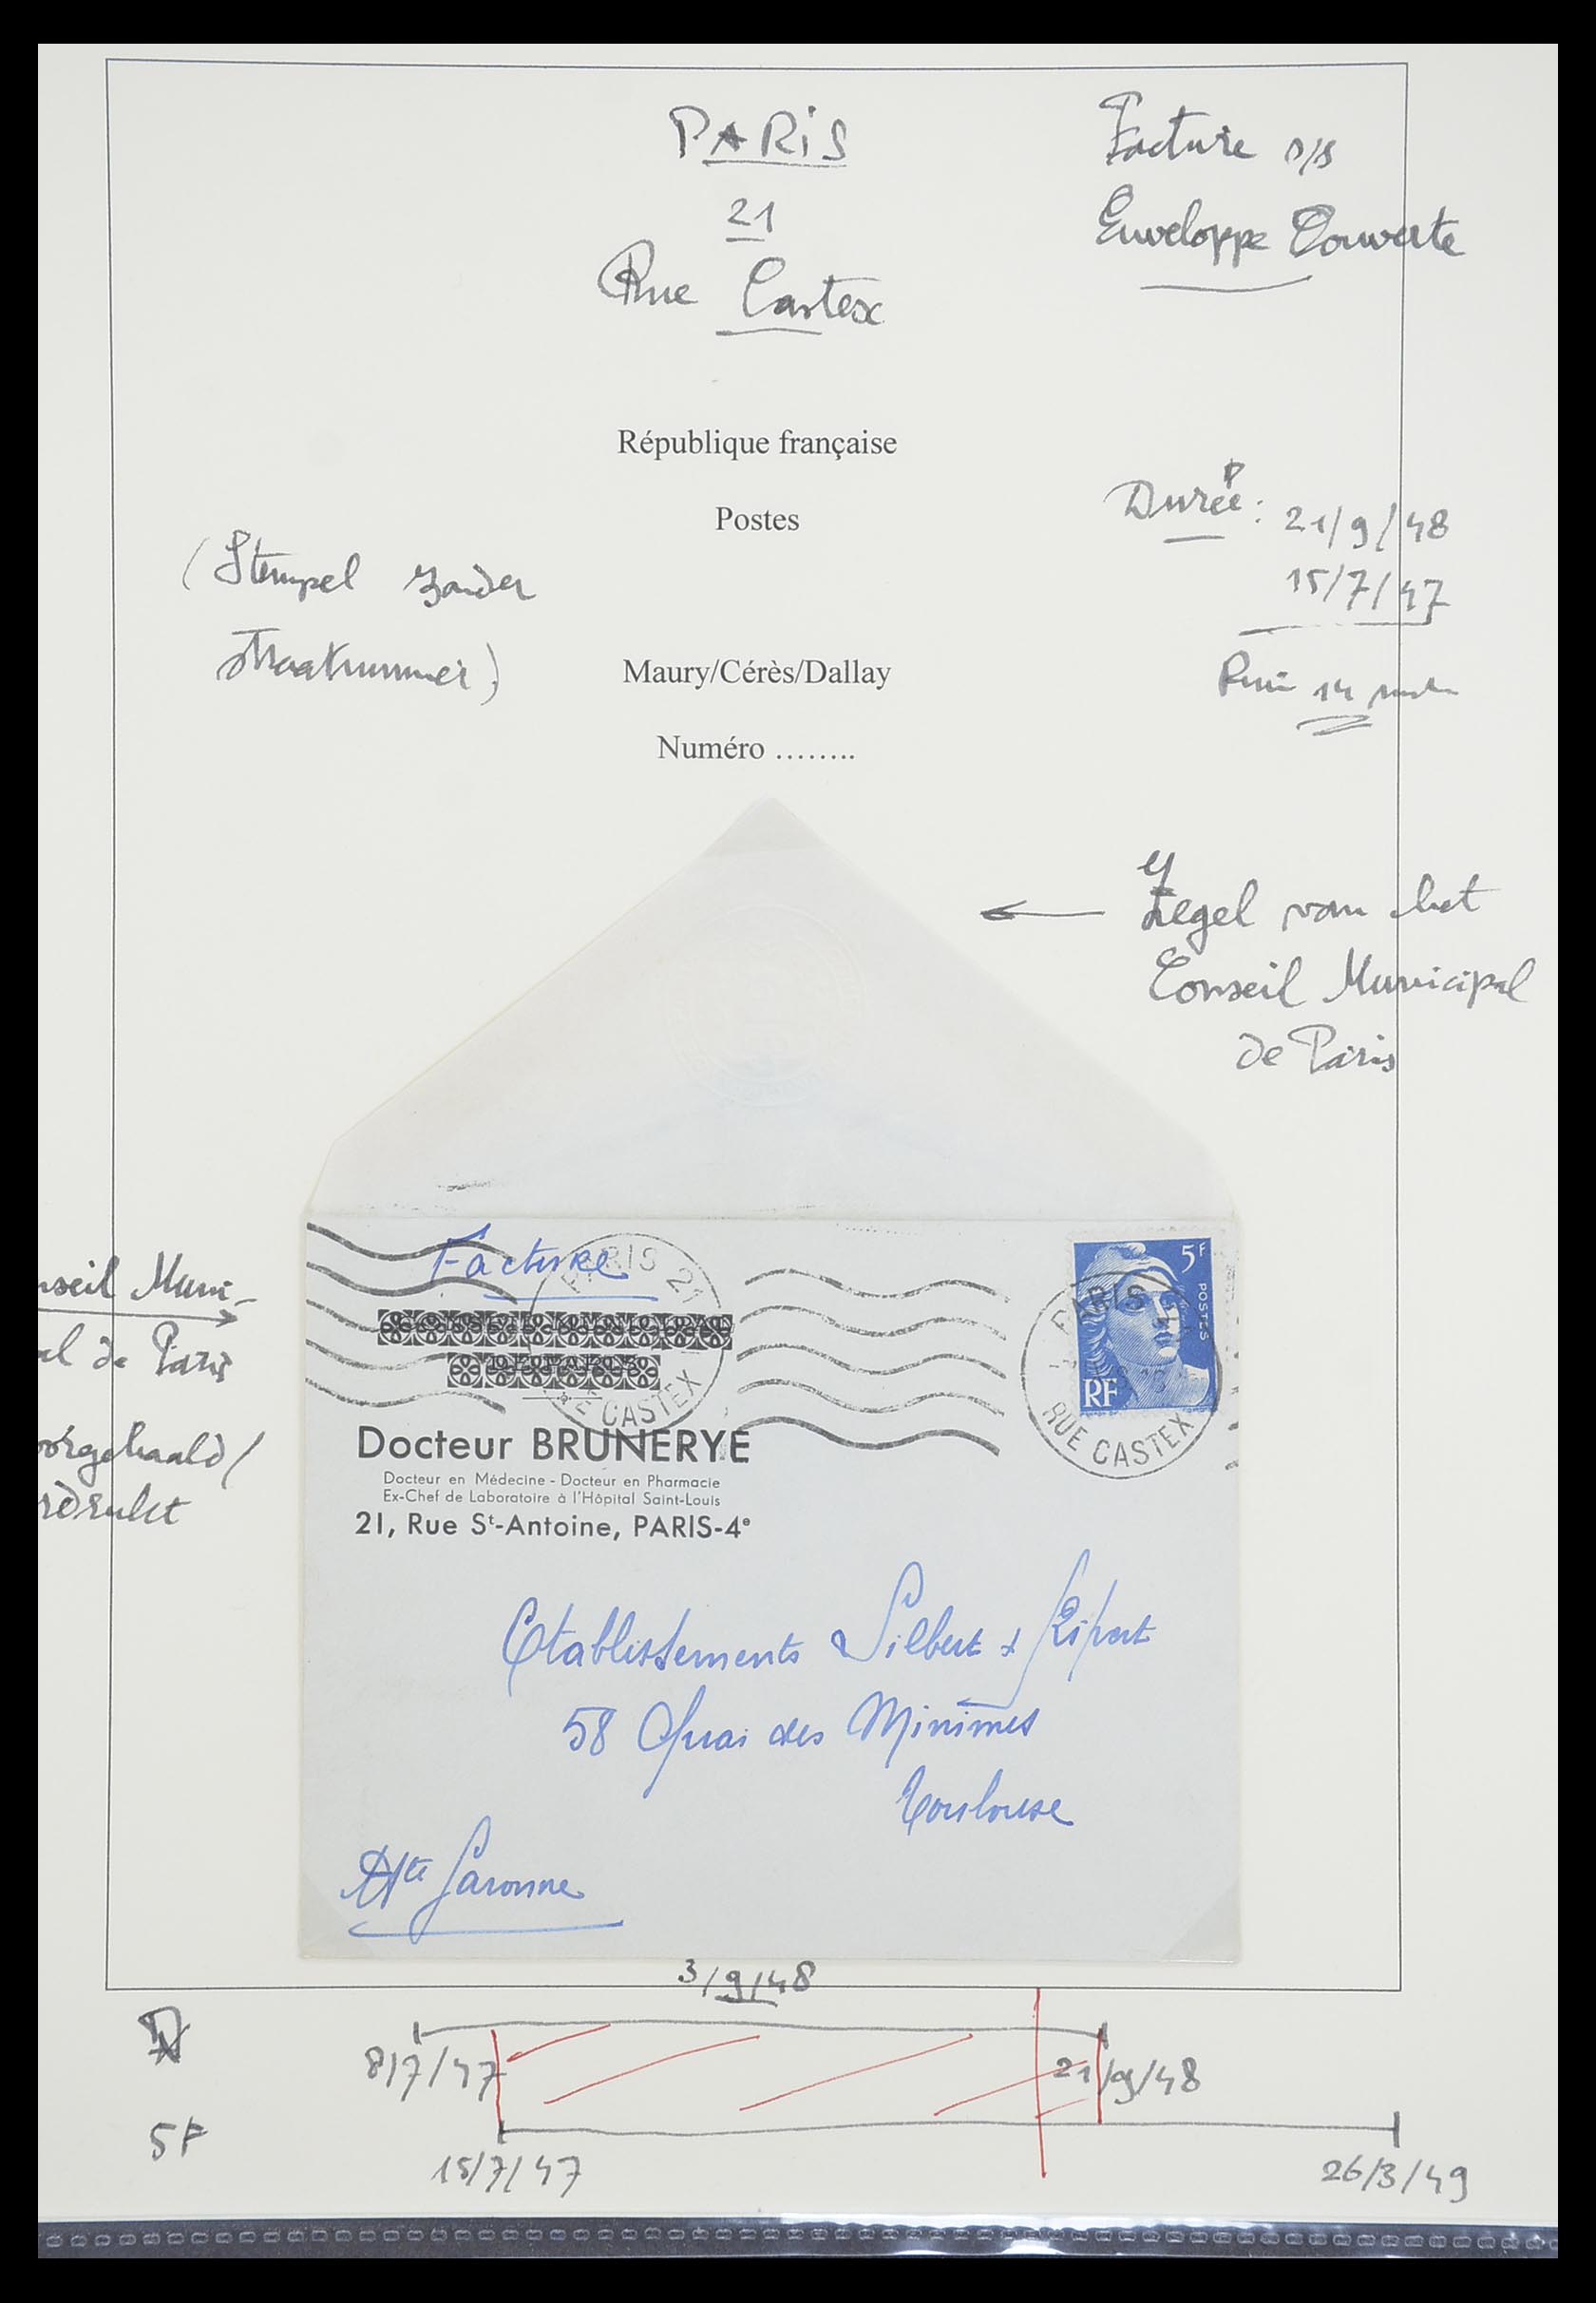 PARIS
21
Rue Castex
Facture s/s
Enveloppe Ouverte
République française
Postes
Maury/Cérès/Dallay
Numéro ........
(Stempel zonder
straatnummer)
Durée: 21/9/48
15/7/47
Ruim 14
Zegel van het
Conseil Municipal
de Paris
nseil Muni-
al de Paris
Facture
PARIS 21
E CASTEX
CONSEIL MUNICIPAL
DE PARIS
5F
POSTES
RF
PARIS
RUE CASTEX
Docteur BRUNERYE
Docteur en Médecine - Docteur en Pharmacie
Ex-Chef de Laboratoire à l'Hôpital Saint-Louis
21, Rue St-Antoine, PARIS-4e
Etablissements Silbert & Ripert
58 Quai des Minimes
Toulouse
Hte Garonne
3/9/48
8/7/47
21/9/48
5F
15/7/47
26/3/49